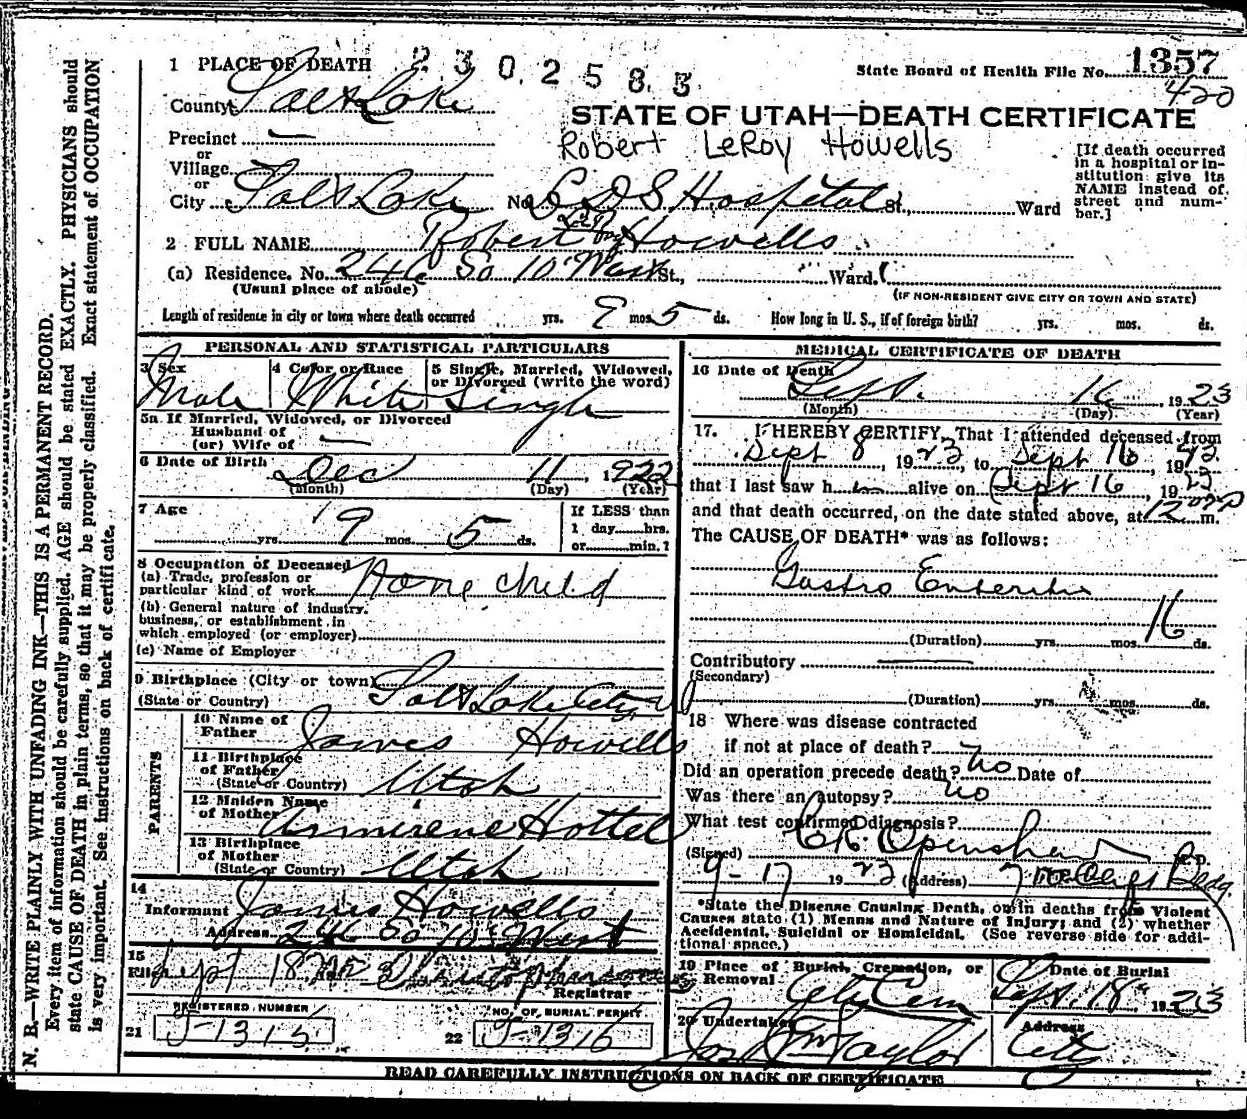 1 PLACE OF DEATH 2302583
State Board of Health File No. 1357
420
County Salt Lake
STATE OF UTAH—DEATH CERTIFICATE
Precinct —
Robert LeRoy Howells
or
Village
or
City Salt Lake No. L D S Hospital St., Ward
[If death occurred
in a hospital or in-
stitution give its
NAME instead of
street and num-
ber.]
2 FULL NAME Robert LeRoy Howells
(a) Residence. No. 246 So 10 West St., Ward.
(Usual place of abode)
(IF NON-RESIDENT GIVE CITY OR TOWN AND STATE)
Length of residence in city or town where death occurred yrs. 9 mos. 5 ds. How long in U. S., if of foreign birth? yrs. mos. ds.
PERSONAL AND STATISTICAL PARTICULARS
3 Sex Male
4 Color or Race White
5 Single, Married, Widowed,
or Divorced (write the word)
Single
5a If Married, Widowed, or Divorced
Husband of
(or) Wife of —
6 Date of Birth Dec 11, 1922
(Month) (Day) (Year)
7 Age
yrs. 9 mos. 5 ds.
If LESS than
1 day hrs.
or min.?
8 Occupation of Deceased
(a) Trade, profession or
particular kind of work None child
(b) General nature of industry,
business, or establishment in
which employed (or employer)
(c) Name of Employer
9 Birthplace (City or town) Salt Lake City
(State or Country)
PARENTS
10 Name of
Father James Howells
11 Birthplace
of Father
(State or Country) Utah
12 Maiden Name
of Mother Hottel
13 Birthplace
of Mother
(State or Country) Utah
14
Informant James Howells
Address 246 So 10 West
15
Filed Sept 18
Registrar
REGISTERED NUMBER
21 J-1315
NO. OF BURIAL PERMIT
22 J-1316
MEDICAL CERTIFICATE OF DEATH
16 Date of Death
Sept. 16 1923
(Month) (Day) (Year)
17. I HEREBY CERTIFY, That I attended deceased from
Sept 8, 1923, to Sept 16, 19
that I last saw h im alive on Sept 16, 1923
and that death occurred, on the date stated above, at 12 m.
The CAUSE OF DEATH* was as follows:
Gastro Enteritis
(Duration) yrs. mos. 16 ds.
Contributory —
(Secondary)
(Duration) yrs. mos. ds.
18 Where was disease contracted
if not at place of death?
Did an operation precede death? no Date of
Was there an autopsy? no
What test confirmed diagnosis?
(Signed) C R Openshaw M. D.
9-17 1923 (Address)
*State the Disease Causing Death, or in deaths from Violent
Causes state (1) Means and Nature of Injury; and (2) whether
Accidental, Suicidal or Homicidal. (See reverse side for addi-
tional space.)
19 Place of Burial, Cremation, or
Removal City Cem
Date of Burial
Sept. 18 1923
20 Undertaker
Jos Wm Taylor
Address
City
READ CAREFULLY INSTRUCTIONS ON BACK OF CERTIFICATE
N. B.—WRITE PLAINLY WITH UNFADING INK—THIS IS A PERMANENT RECORD.
Every item of information should be carefully supplied. AGE should be stated EXACTLY. PHYSICIANS should
state CAUSE OF DEATH in plain terms, so that it may be properly classified. Exact statement of OCCUPATION
is very important. See instructions on back of certificate.